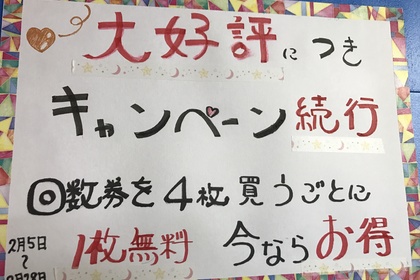 大好評につき
キャンペーン続行
回数券を4枚買うごとに
1枚無料 今ならお得
2月5日
~
2月28日